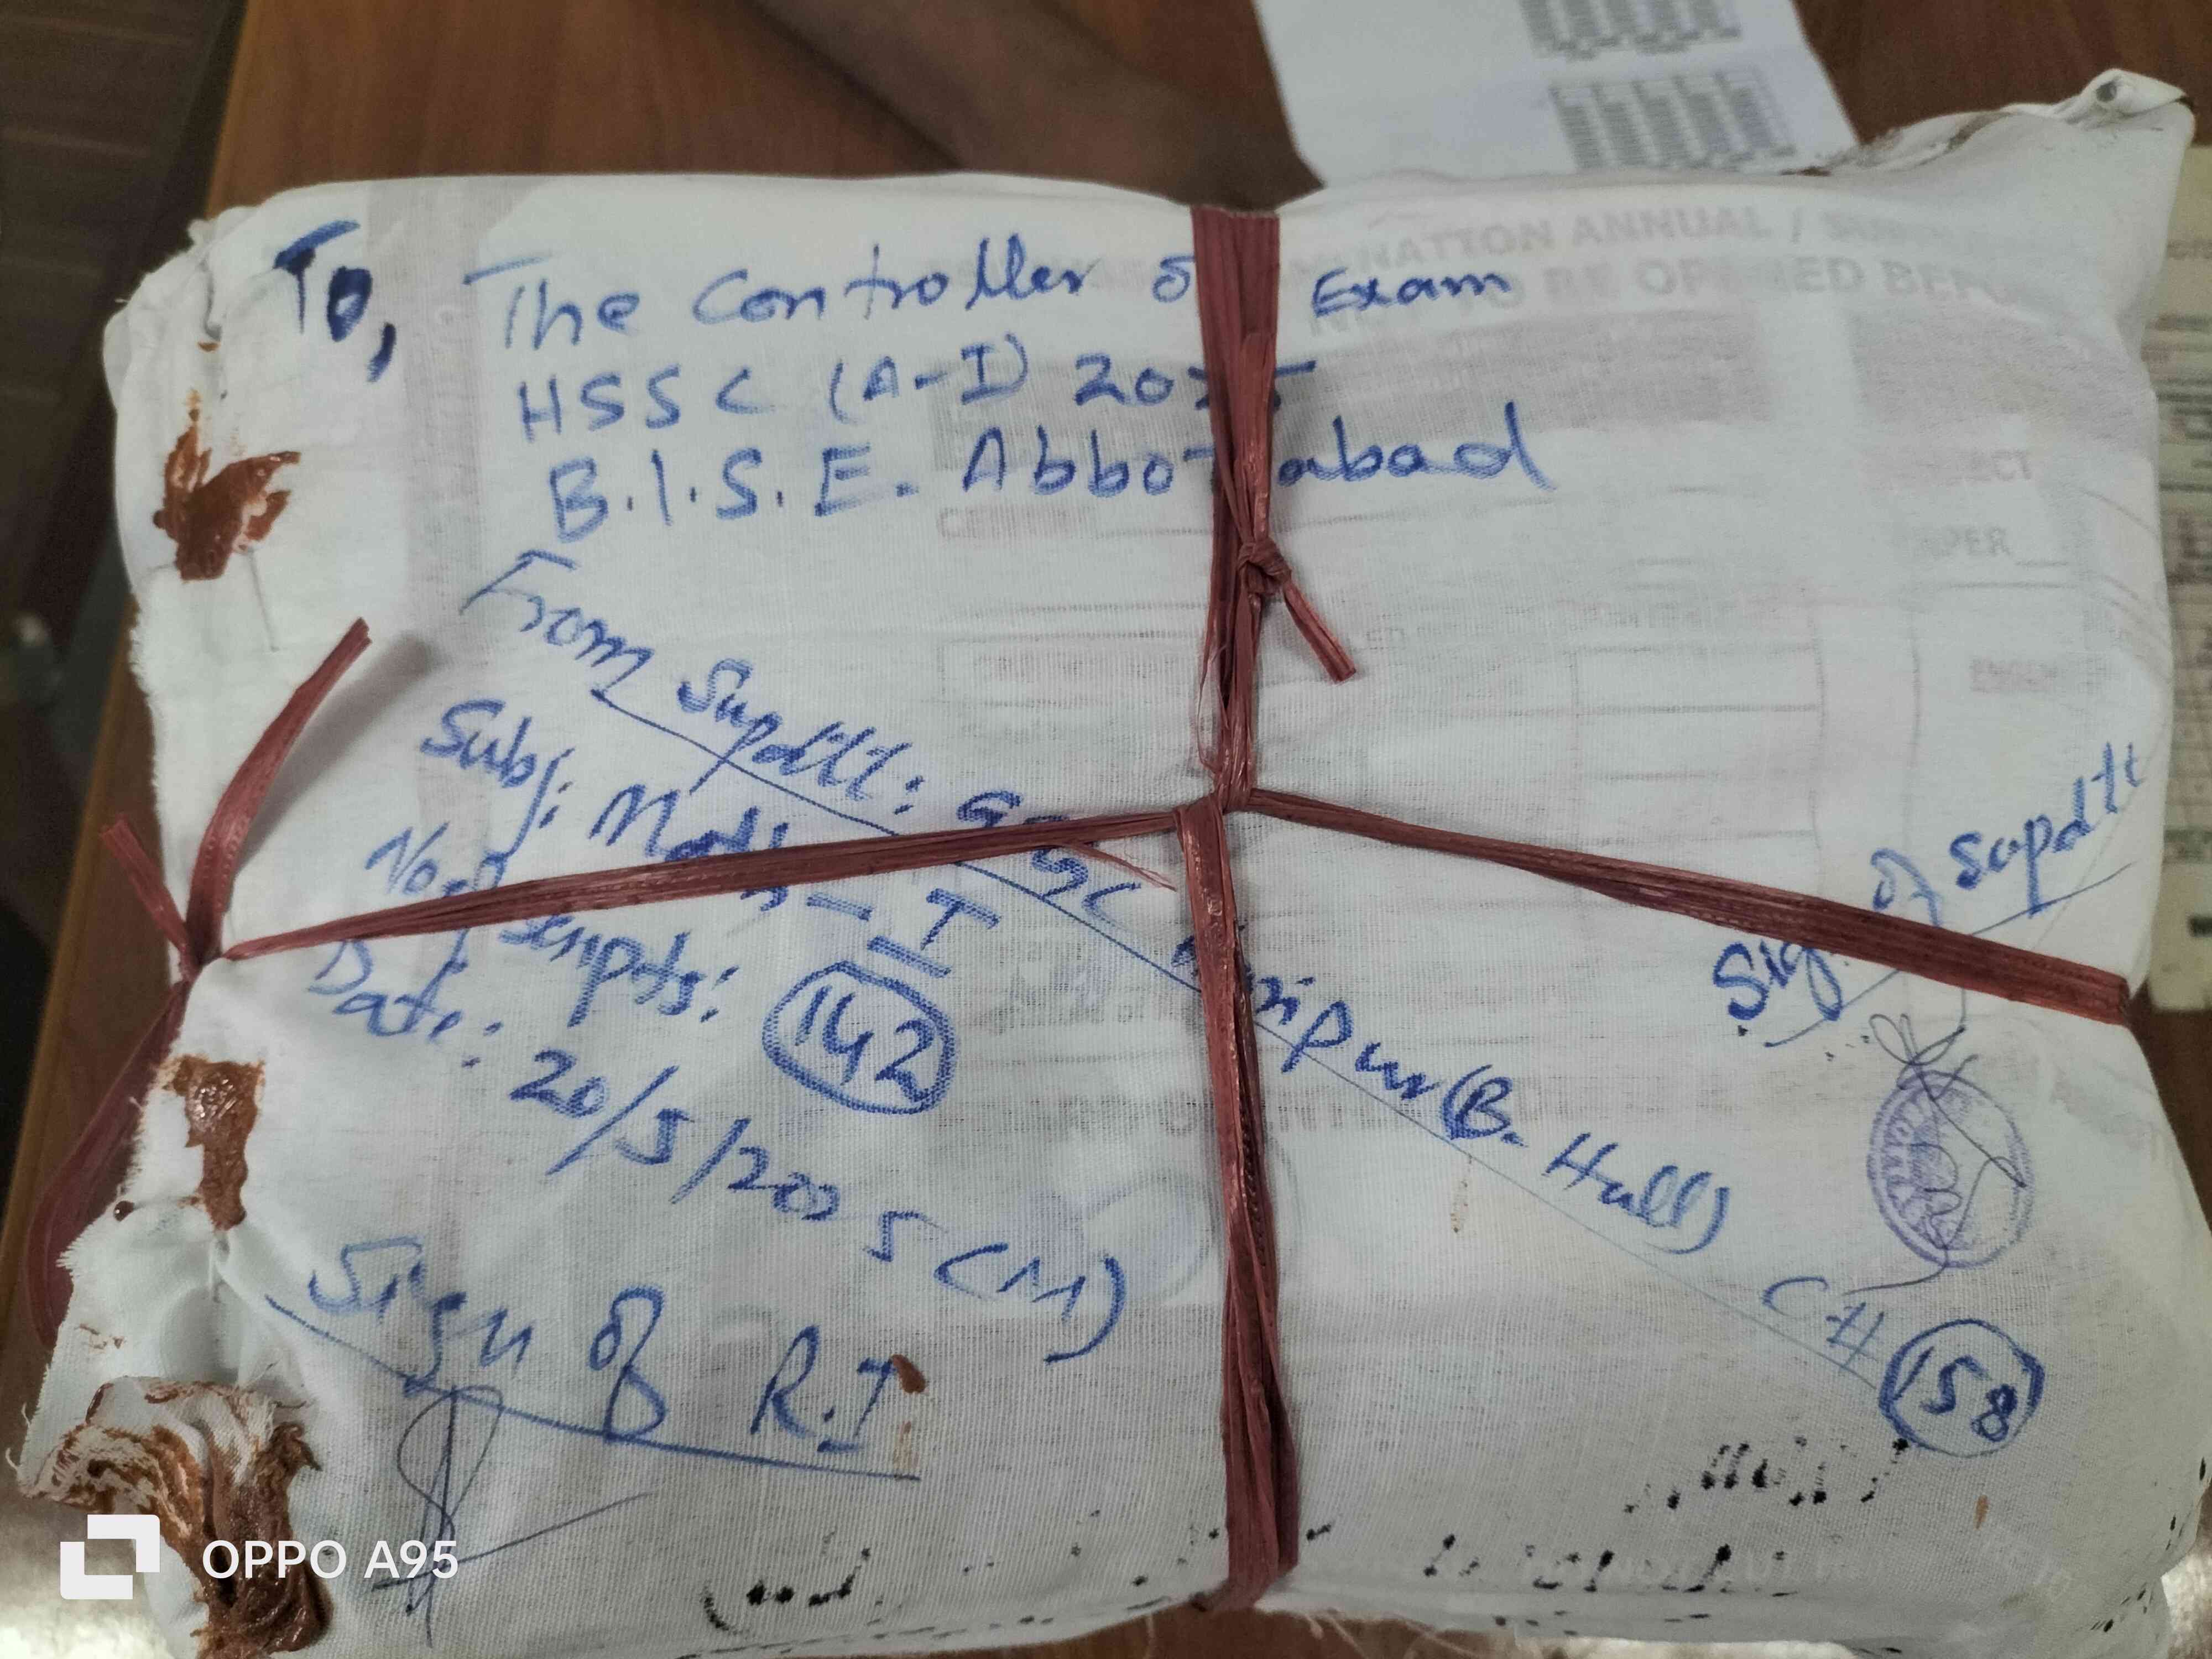 To, The Controller of Exam
HSSC (A-I) 2025
B.I.S.E. Abbottabad
From Supdtt: Haripur (B. Hall)
Subj: Maths - I
No. of scripts: 142
Date: 20/5/2025 (M)
Sign of Supdtt
CH 158
Sign of R.I
ANNUAL /
NOT TO BE OPENED
PAPER
OPPO A95